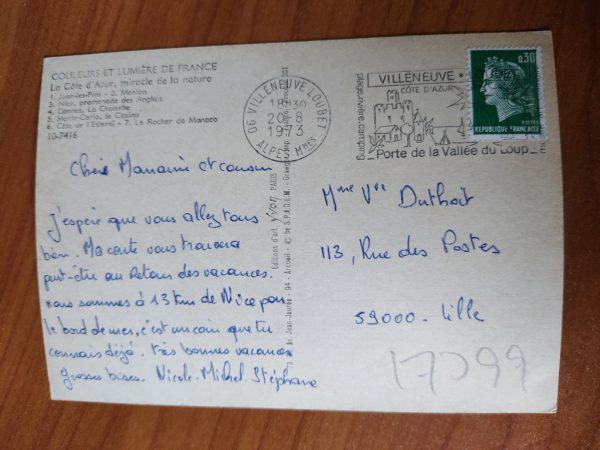 COULEURS ET LUMIÈRE DE FRANCE
La Côte d'Azur, miracle de la nature
1. Juan-les-Pins - 2. Menton
3. Nice, promenade des Anglais
4. Cannes, La Croisette
5. Monte-Carlo, le Casino
6. Côte de l'Esterel - 7. Le Rocher de Monaco
10-7416
06 VILLENEUVE LOUBET
18H30
20-8
1973
ALPES Mmes
VILLENEUVE
CÔTE D'AZUR
plage.rivière.camping
Porte de la Vallée du Loup
0,30
POSTES
REPUBLIQUE FRANÇAISE
Editions d'art Yvon PARIS
Av. Jean-Jaurès - 94 - Arcueil - © by S.P.A.D.E.M.
Chère Marraine et cousin
J'espère que vous allez tous
bien. Ma carte vous trouvera
peut-être au Retour des vacances.
nous sommes à 13 km de Nice par
le bord de mer, c'est un coin que tu
connais déjà. très bonnes vacances
grosses bises. Nicole. Michel. Stéphane
Mme Vve Duthoit
113, Rue des Postes
59000 - Lille